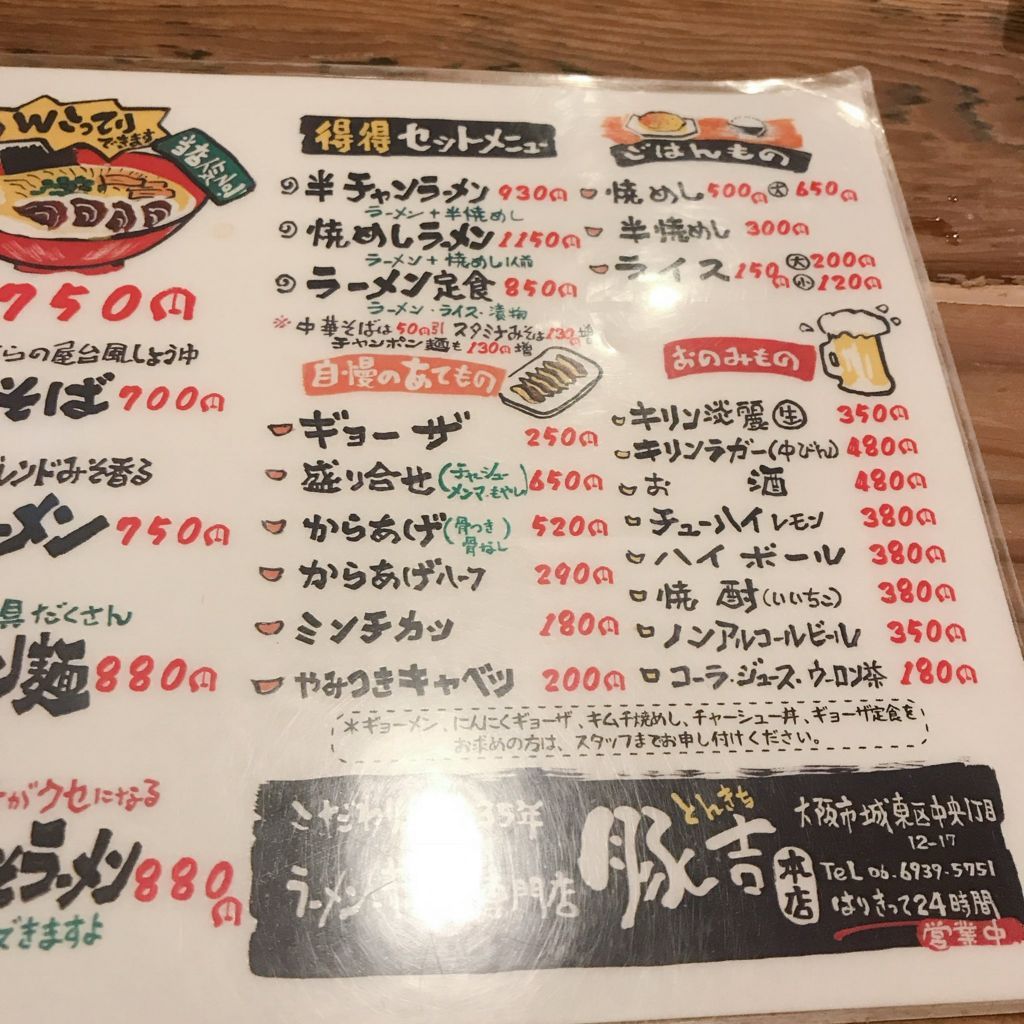 Wこってり
できます
750円
の屋台風しょうゆ
そば 700円
レンドみそ香る
ーメン 750円
具だくさん
麺 880円
がクセになる
ラーメン 880円
できますよ
得得セットメニュー
半チャンラーメン 930円
ラーメン+半焼めし
焼めしラーメン 1150円
ラーメン+焼めし1人前
ラーメン定食 850円
ラーメン・ライス・漬物
※中華そばは50円引 スタミナみそは130円増
チャンポン麺も130円増
自慢のあてもの
ギョーザ 250円
盛り合せ(チャーシュー メンマ・もやし) 650円
からあげ(骨つき 骨なし) 520円
からあげハーフ 290円
ミンチカツ 180円
やみつきキャベツ 200円
ごはんもの
焼めし 500円 大 650円
半焼めし 300円
ライス 150円 大 200円
小 120円
おのみもの
キリン淡麗生 350円
キリンラガー(中びん) 480円
お酒 480円
チューハイレモン 380円
ハイボール 380円
焼酎(いいちこ) 380円
ノンアルコールビール 350円
コーラ・ジュース・ウーロン茶 180円
*ギョーメン、にんにくギョーザ、キムチ焼めし、チャーシュー丼、ギョーザ定食を
お求めの方は、スタッフまでお申し付けください。
こだわり 35年
ラーメン 専門店
とんきち
豚吉
本店
大阪市城東区中央1丁目
12-17
TeL 06.6939.5751
はりきって24時間
営業中